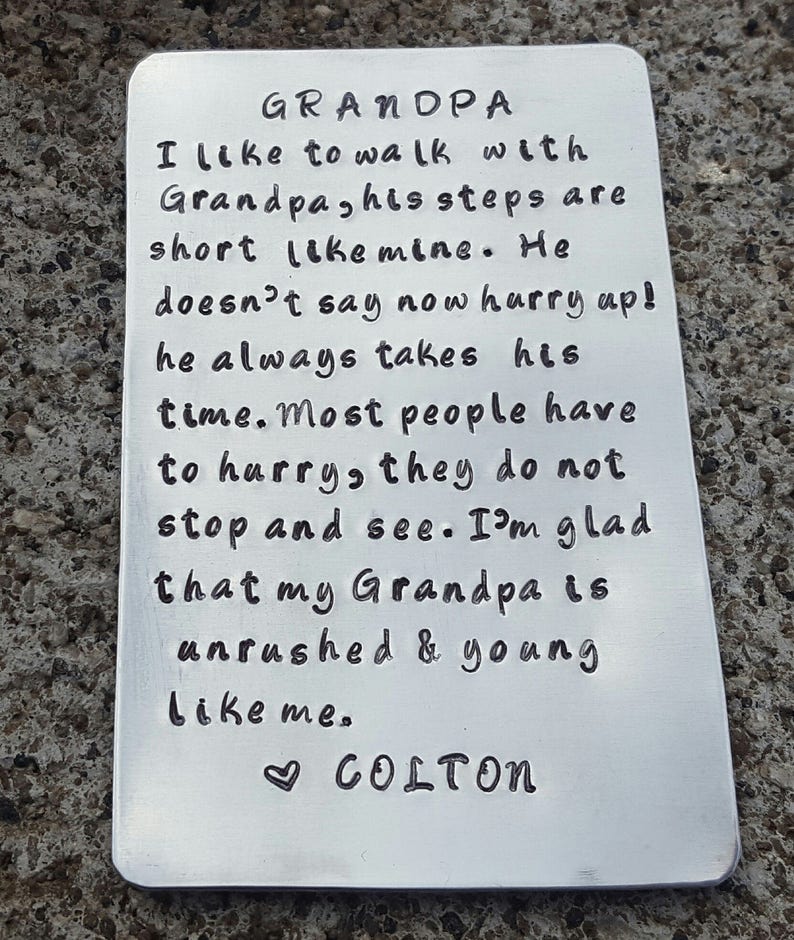 GRANDPA
I like to walk with
Grandpa, his steps are
short like mine. He
doesn't say now hurry up!
he always takes his
time. Most people have
to hurry, they do not
stop and see. I'm glad
that my Grandpa is
unrushed & young
like me.
♡ COLTON